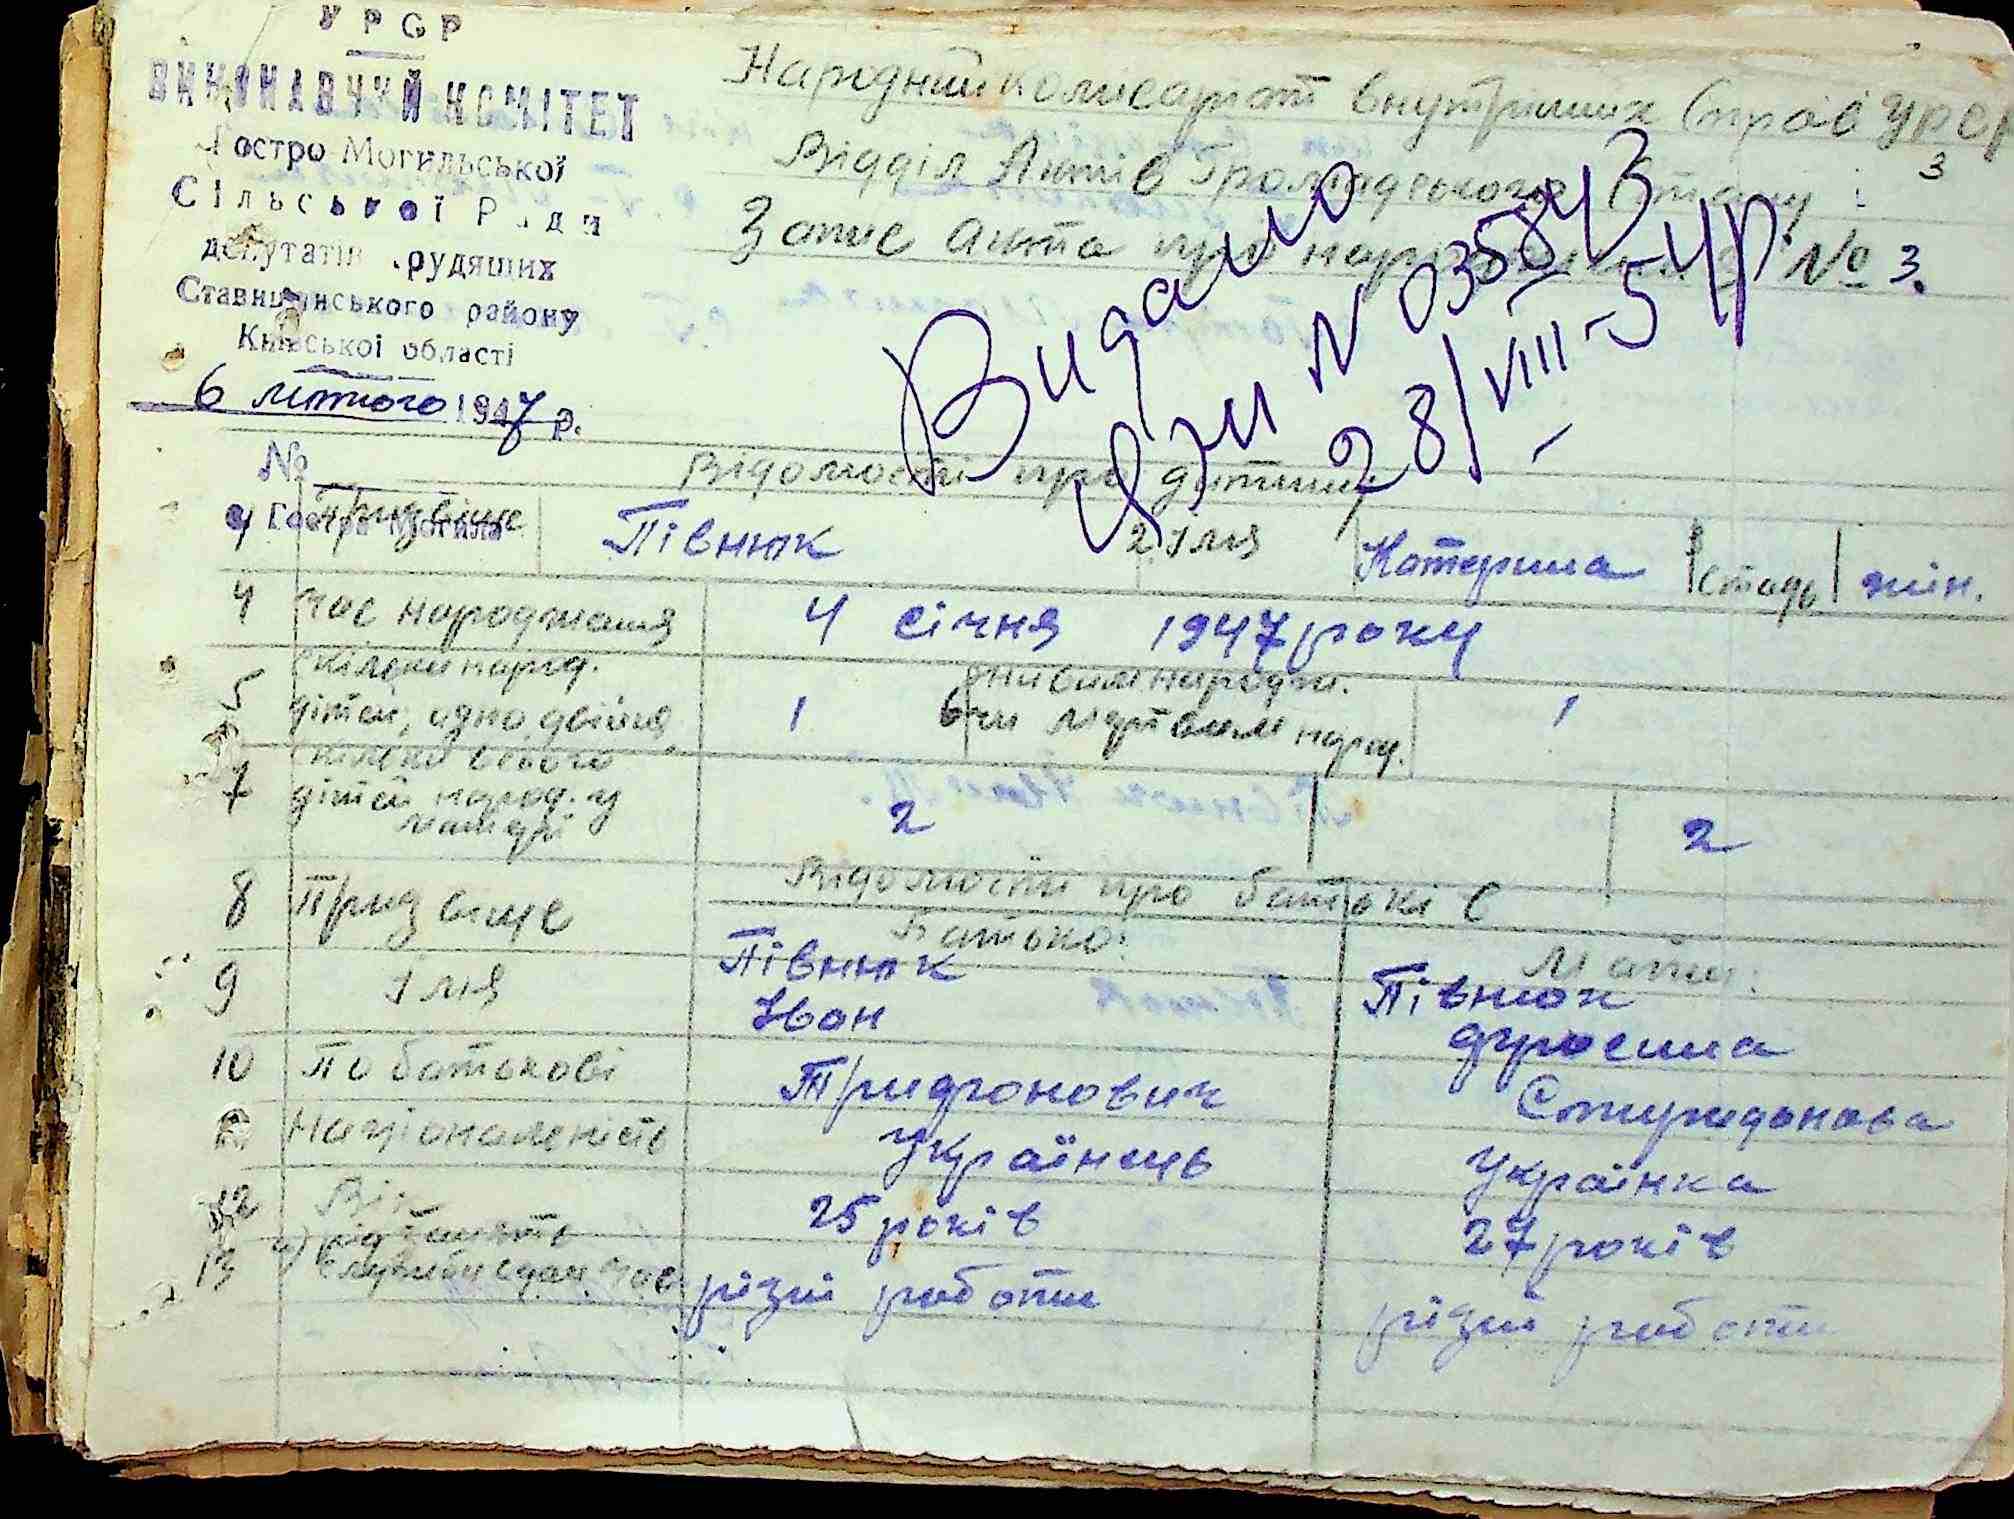 УРСР
ВИКОНАВЧИЙ КОМІТЕТ
Гостро Могильської
Сільської Ради
депутатів трудящих
Ставищанського району
Київської області
6 лютого 1947 р.
№
с. Гостра Могила
Народний комісаріат внутрішніх справ УРСР
3
Відділ Актів Громадського Стану
Запис акта про народження № 3.
Видано
ЯЗИ № 035843
28/VIII-54р
Відомості про дитину
1 Призвіще Півнюк 2. Імя Катерина 3 Стать жін.
4 Час народження 4 січня 1947 року
5 скільки народ. дітей, одно, двійня 1 6 живим народж. чи мертвим народ. 1
7 скільки всього дітей народ. у матері 2 2
Відомости про батьків
Батько: Мати:
8 Призвище Півнюк Півнюк
9 Імя Іван
10 По батькові Трифонович
Національність Українець Українка
12 Вік 25 років 27 років
13 різні роботи різні роботи